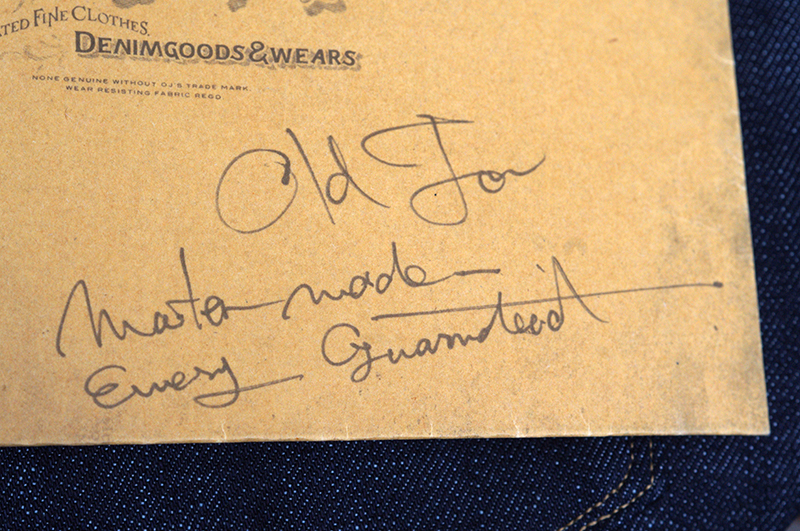 FINE CLOTHES,
DENIMGOODS&WEARS
NONE GENUINE WITHOUT OJ'S TRADE MARK.
WEAR RESISTING FABRIC REGD.
Old Joe
Master made
Every Guaranteed